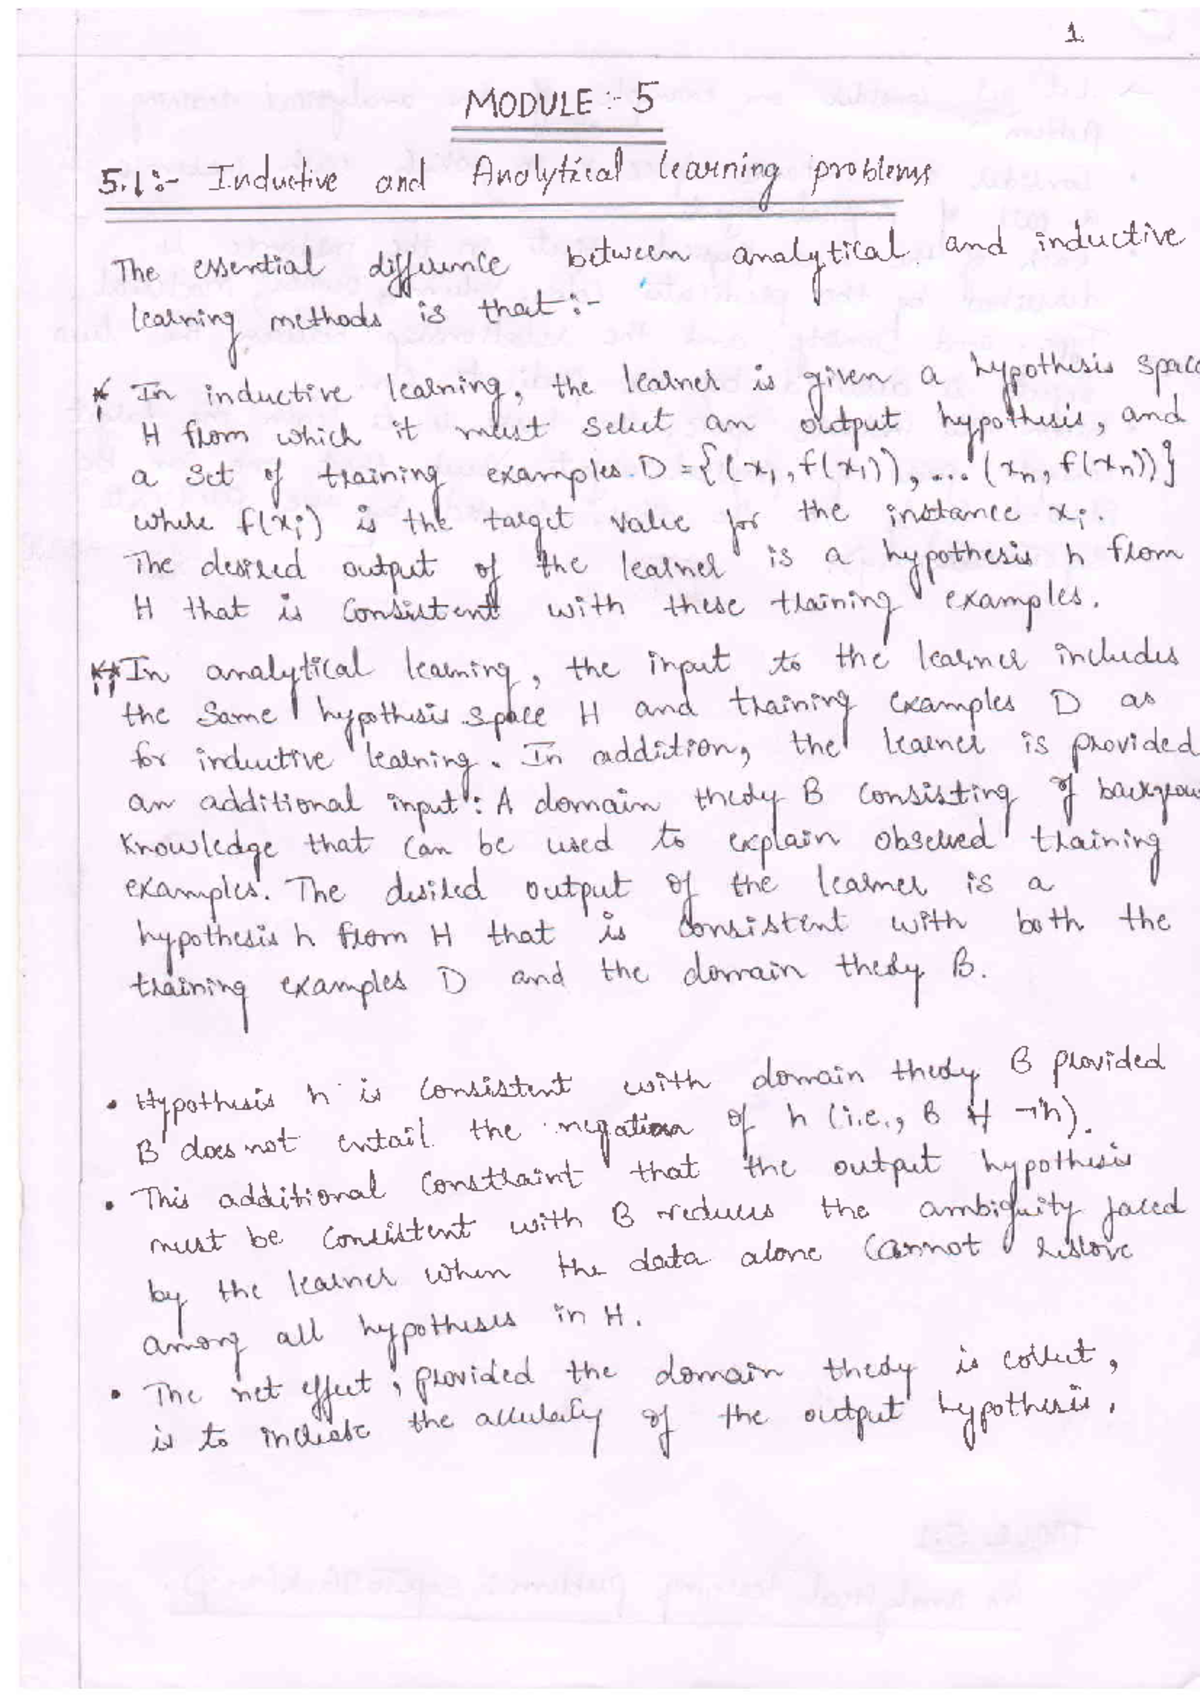 1.
MODULE :- 5
5.1:- Inductive and Analytical learning problems
The essential difference between analytical and inductive
learning methods is that:-
* In inductive learning, the learner is given a hypothesis space
H from which it must select an output hypothesis, and
a set of training examples D = {(x₁, f(x₁)), ... (xₙ, f(xₙ))}
where f(xᵢ) is the target value for the instance xᵢ.
The desired output of the learner is a hypothesis h from
H that is consistent with these training examples.
** In analytical learning, the input to the learner includes
the same hypothesis space H and training examples D as
for inductive learning. In addition, the learner is provided
an additional input: A domain theory B consisting of backgrou
knowledge that can be used to explain observed training
examples. The desired output of the learner is a
hypothesis h from H that is consistent with both the
training examples D and the domain theory B.
• Hypothesis h is consistent with domain theory B provided
B does not entail the negation of h (i.e., B ⊬ ¬h).
• This additional constraint that the output hypothesis
must be consistent with B reduces the ambiguity faced
by the learner when the data alone cannot reslove
among all hypothesis in H.
• The net effect, provided the domain theory is correct,
is to increase the accuracy of the output hypothesis.